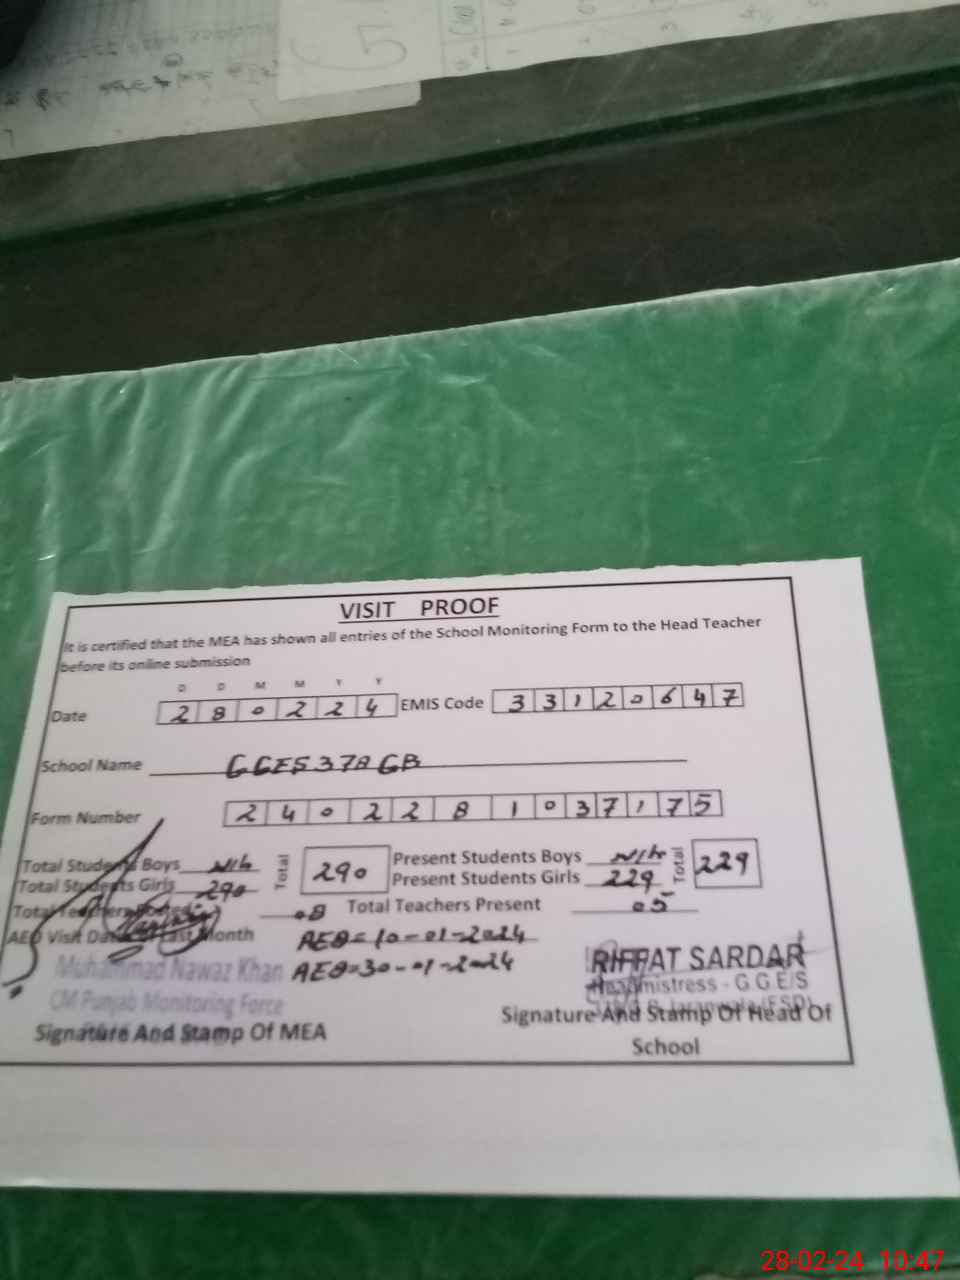 5
VISIT PROOF
It is certified that the MEA has shown all entries of the School Monitoring Form to the Head Teacher
before its online submission
D D M M Y Y
Date 2 8 0 2 2 4 EMIS Code 3 3 1 2 0 6 4 7
School Name GGES 378 GB
Form Number 2 4 0 2 2 8 1 0 3 7 1 7 5
Total Students Boys Nil Total 290 Present Students Boys Nil Total 229
Total Students Girls 290 Present Students Girls 229
Total Teachers Posted 08 Total Teachers Present 05
AEO Visit Date Of Last Month AEO=10-01-2024
AEO=30-01-2024
Muhammad Nawaz Khan
CM Punjab Monitoring Force
Signature And Stamp Of MEA
RIFFAT SARDAR
Headmistress - G.G.E/S
Signature And Stamp Of Head Of
School
28-02-24 10:47